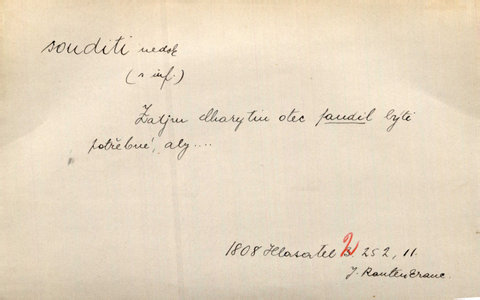 souditi nedok
(s inf.)
Zatjm otec saudil býti
potřebné, aby....
1808 Hlasatel 2 252, 11.
J. Rautenkranc.